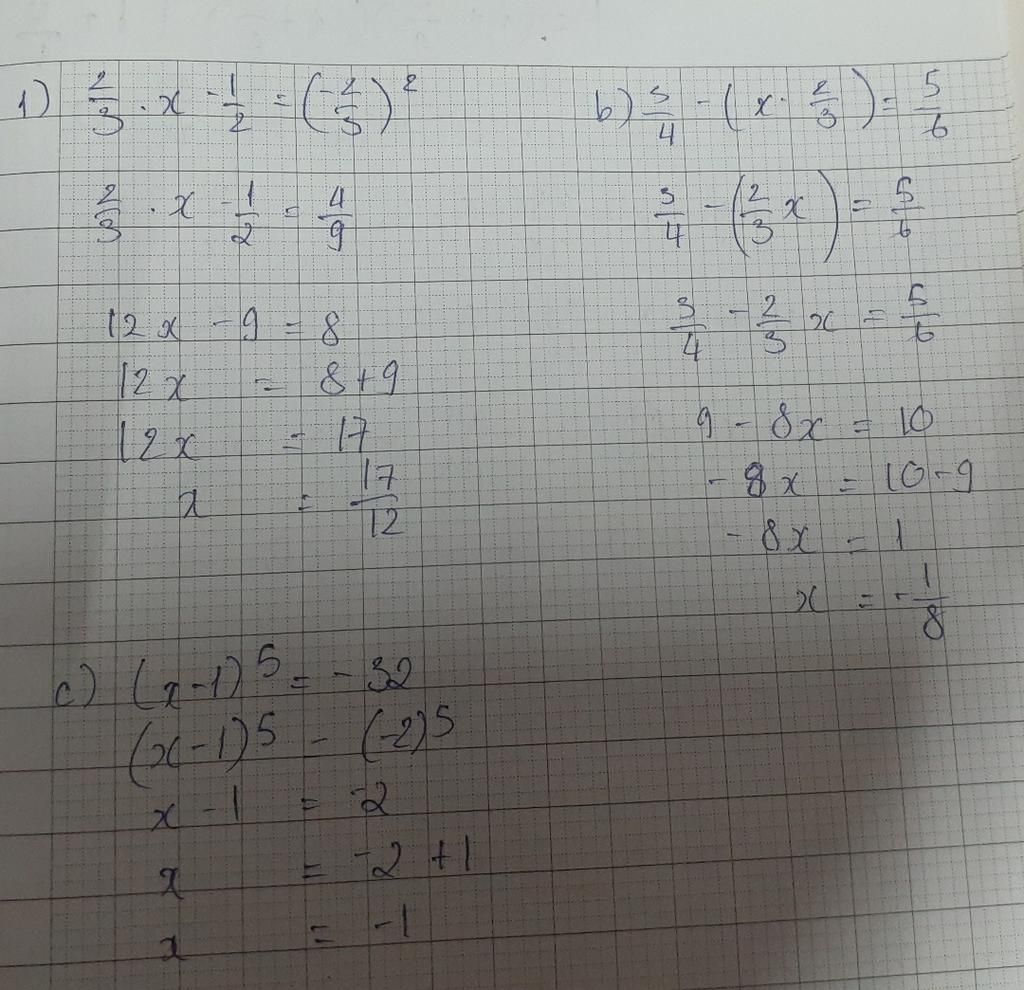 1) 2/3 . x - 1/2 = (-2/3)²
2/3 . x - 1/2 = 4/9
12x - 9 = 8
12x = 8+9
12x = 17
x = 17/12
b) 3/4 - (x . 2/3) = 5/6
3/4 - (2/3 x) = 5/6
3/4 - 2/3 x = 5/6
9 - 8x = 10
- 8x = 10-9
- 8x = 1
x = -1/8
c) (x-1)⁵ = -32
(x-1)⁵ - (-2)⁵
x - 1 = -2
x = -2 +1
x = -1